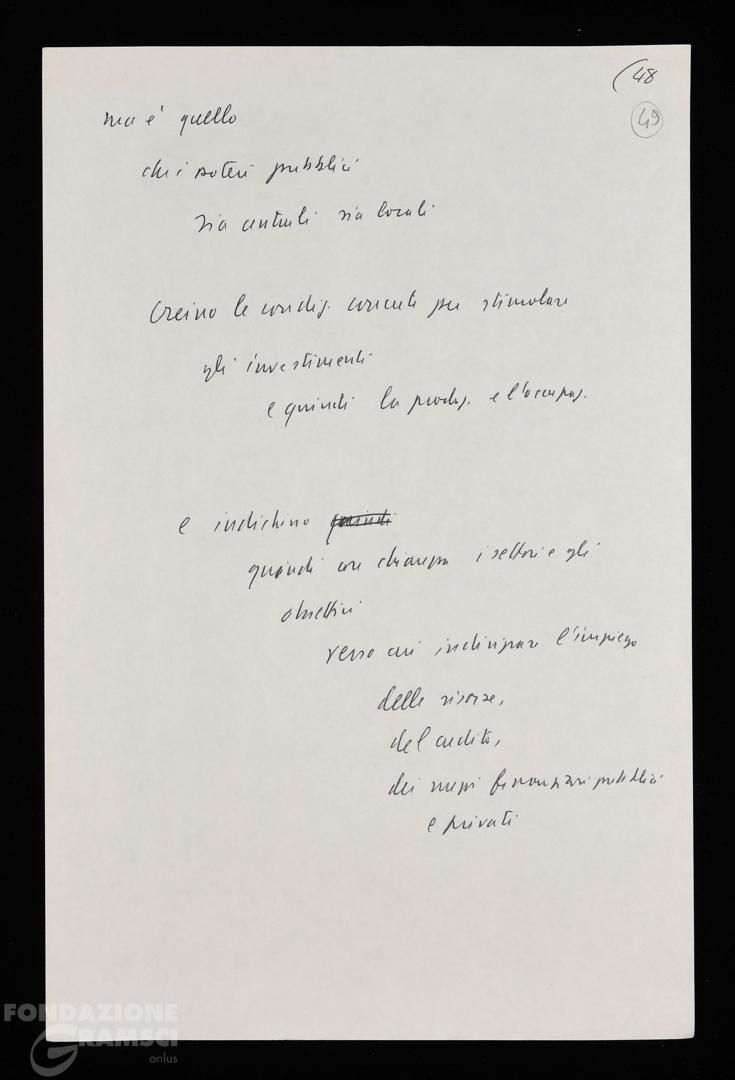 (48
49
ma è quello
che i poteri pubblici
sia centrali sia locali
creino le condiz. concrete per stimolare
gli investimenti
e quindi la produz. e l'occupaz.
e indichino quindi
quindi con chiarezza i settori e gli
obiettivi
verso cui indirizzare l'impiego
delle risorse,
del credito,
dei mezzi finanziari pubblici
e privati
FONDAZIONE
GRAMSCI
onlus